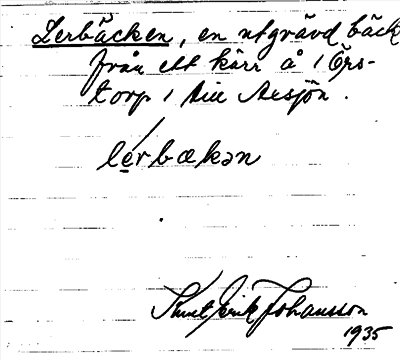 Lerbäcken, en utgrävd bäck
från ett kärr å 1 Örs-
torp 1 till Aesjön.
lérbækən
Knut Erik Johansson
1935